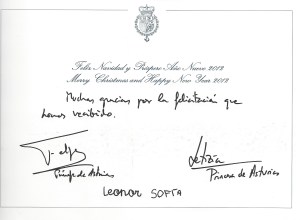 Feliz Navidad y Próspero Año Nuevo 2012
Merry Christmas and Happy New Year 2012
Muchas gracias por la felicitación que
hemos recibido.
Felipe Letizia
Príncipe de Asturias Princesa de Asturias
Leonor SOFIA